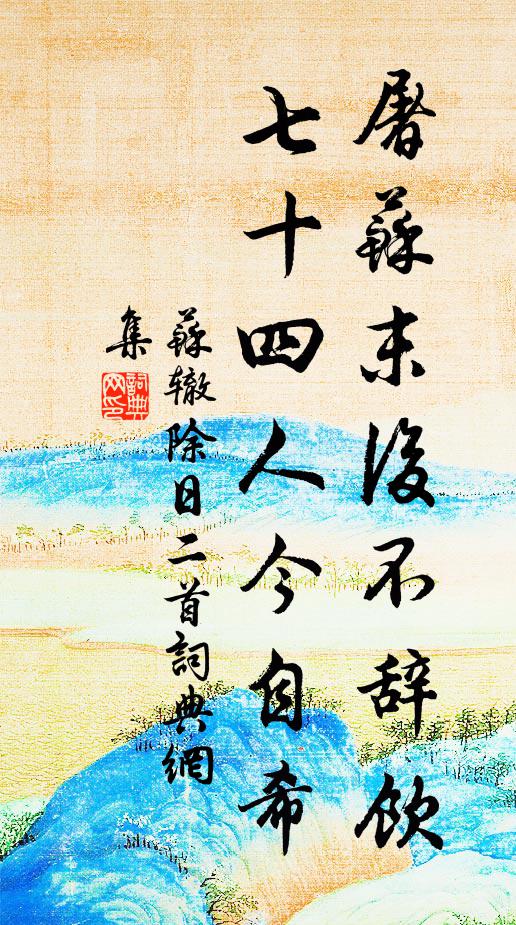 屠蘇末後不辞飲
七十四人今自希
蘇辙除日二首詞典網
集
詞典网印